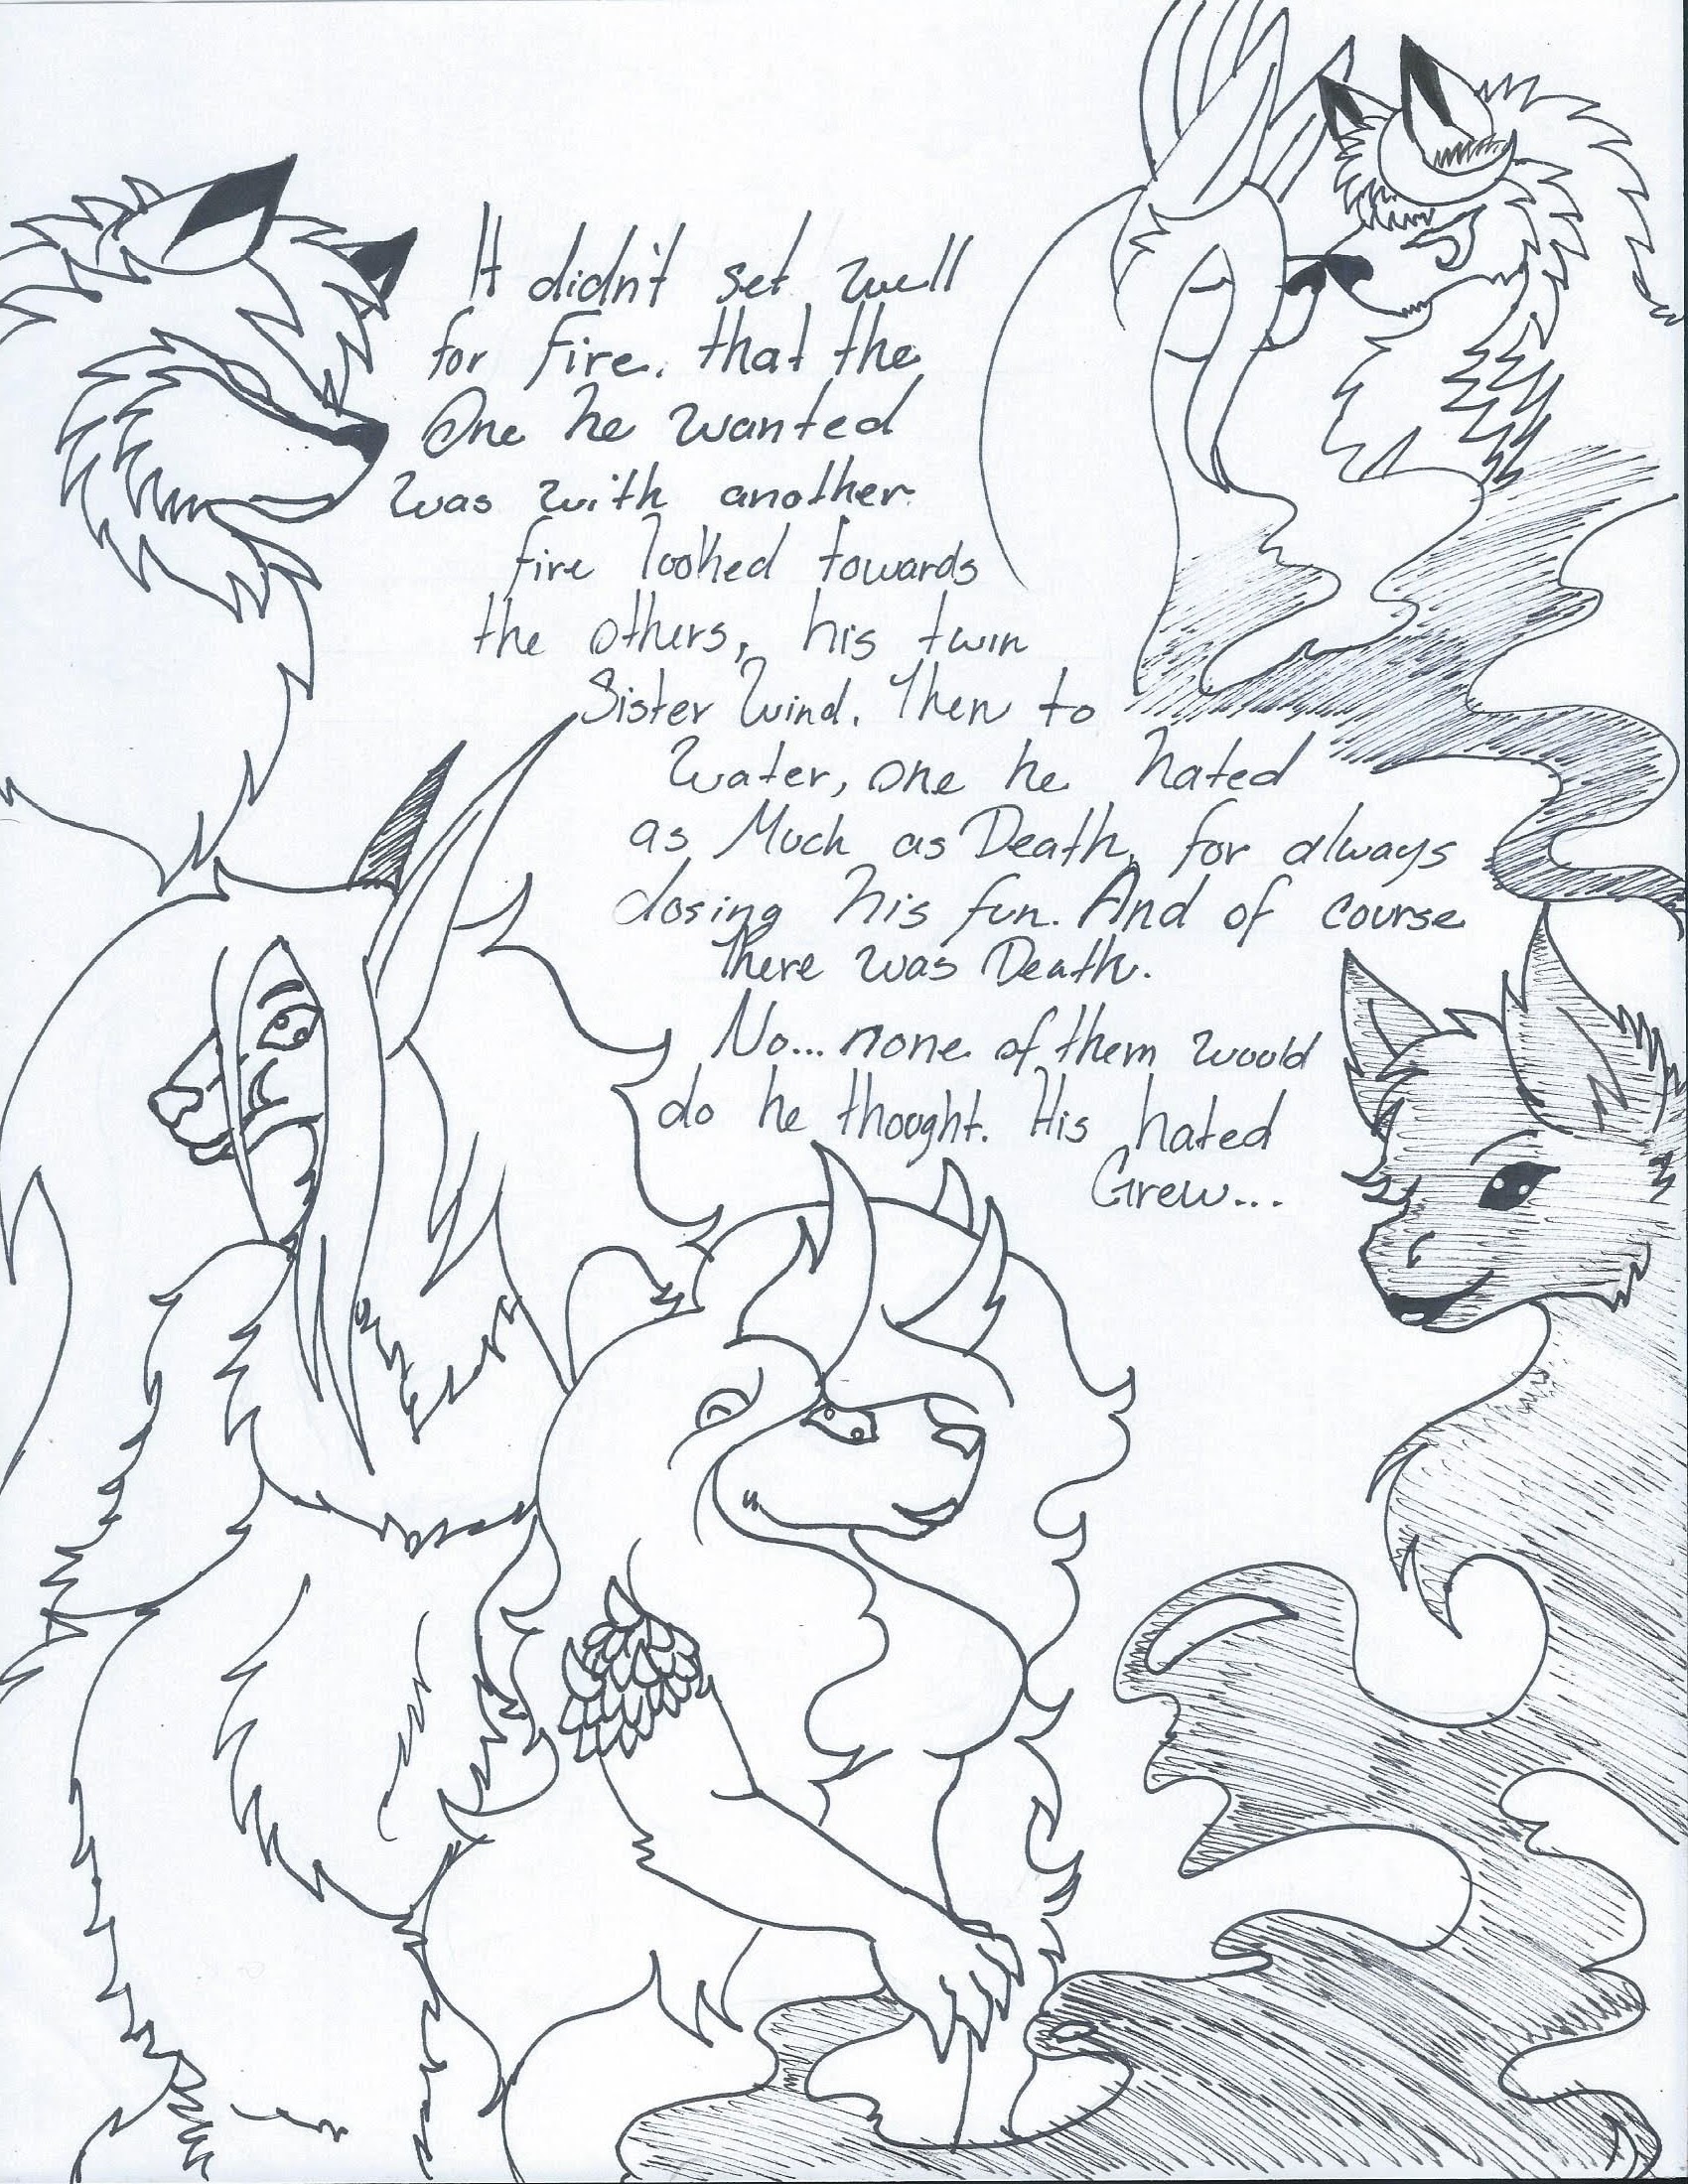 It didn't set well
for fire. that the
One he wanted
was with another.
fire looked towards
the others, his twin
Sister Wind. Then to
Water, one he hated
as Much as Death, for always
dosing his fun. And of course
There was Death.
No... none of them would
do he thought. His hated
Grew...